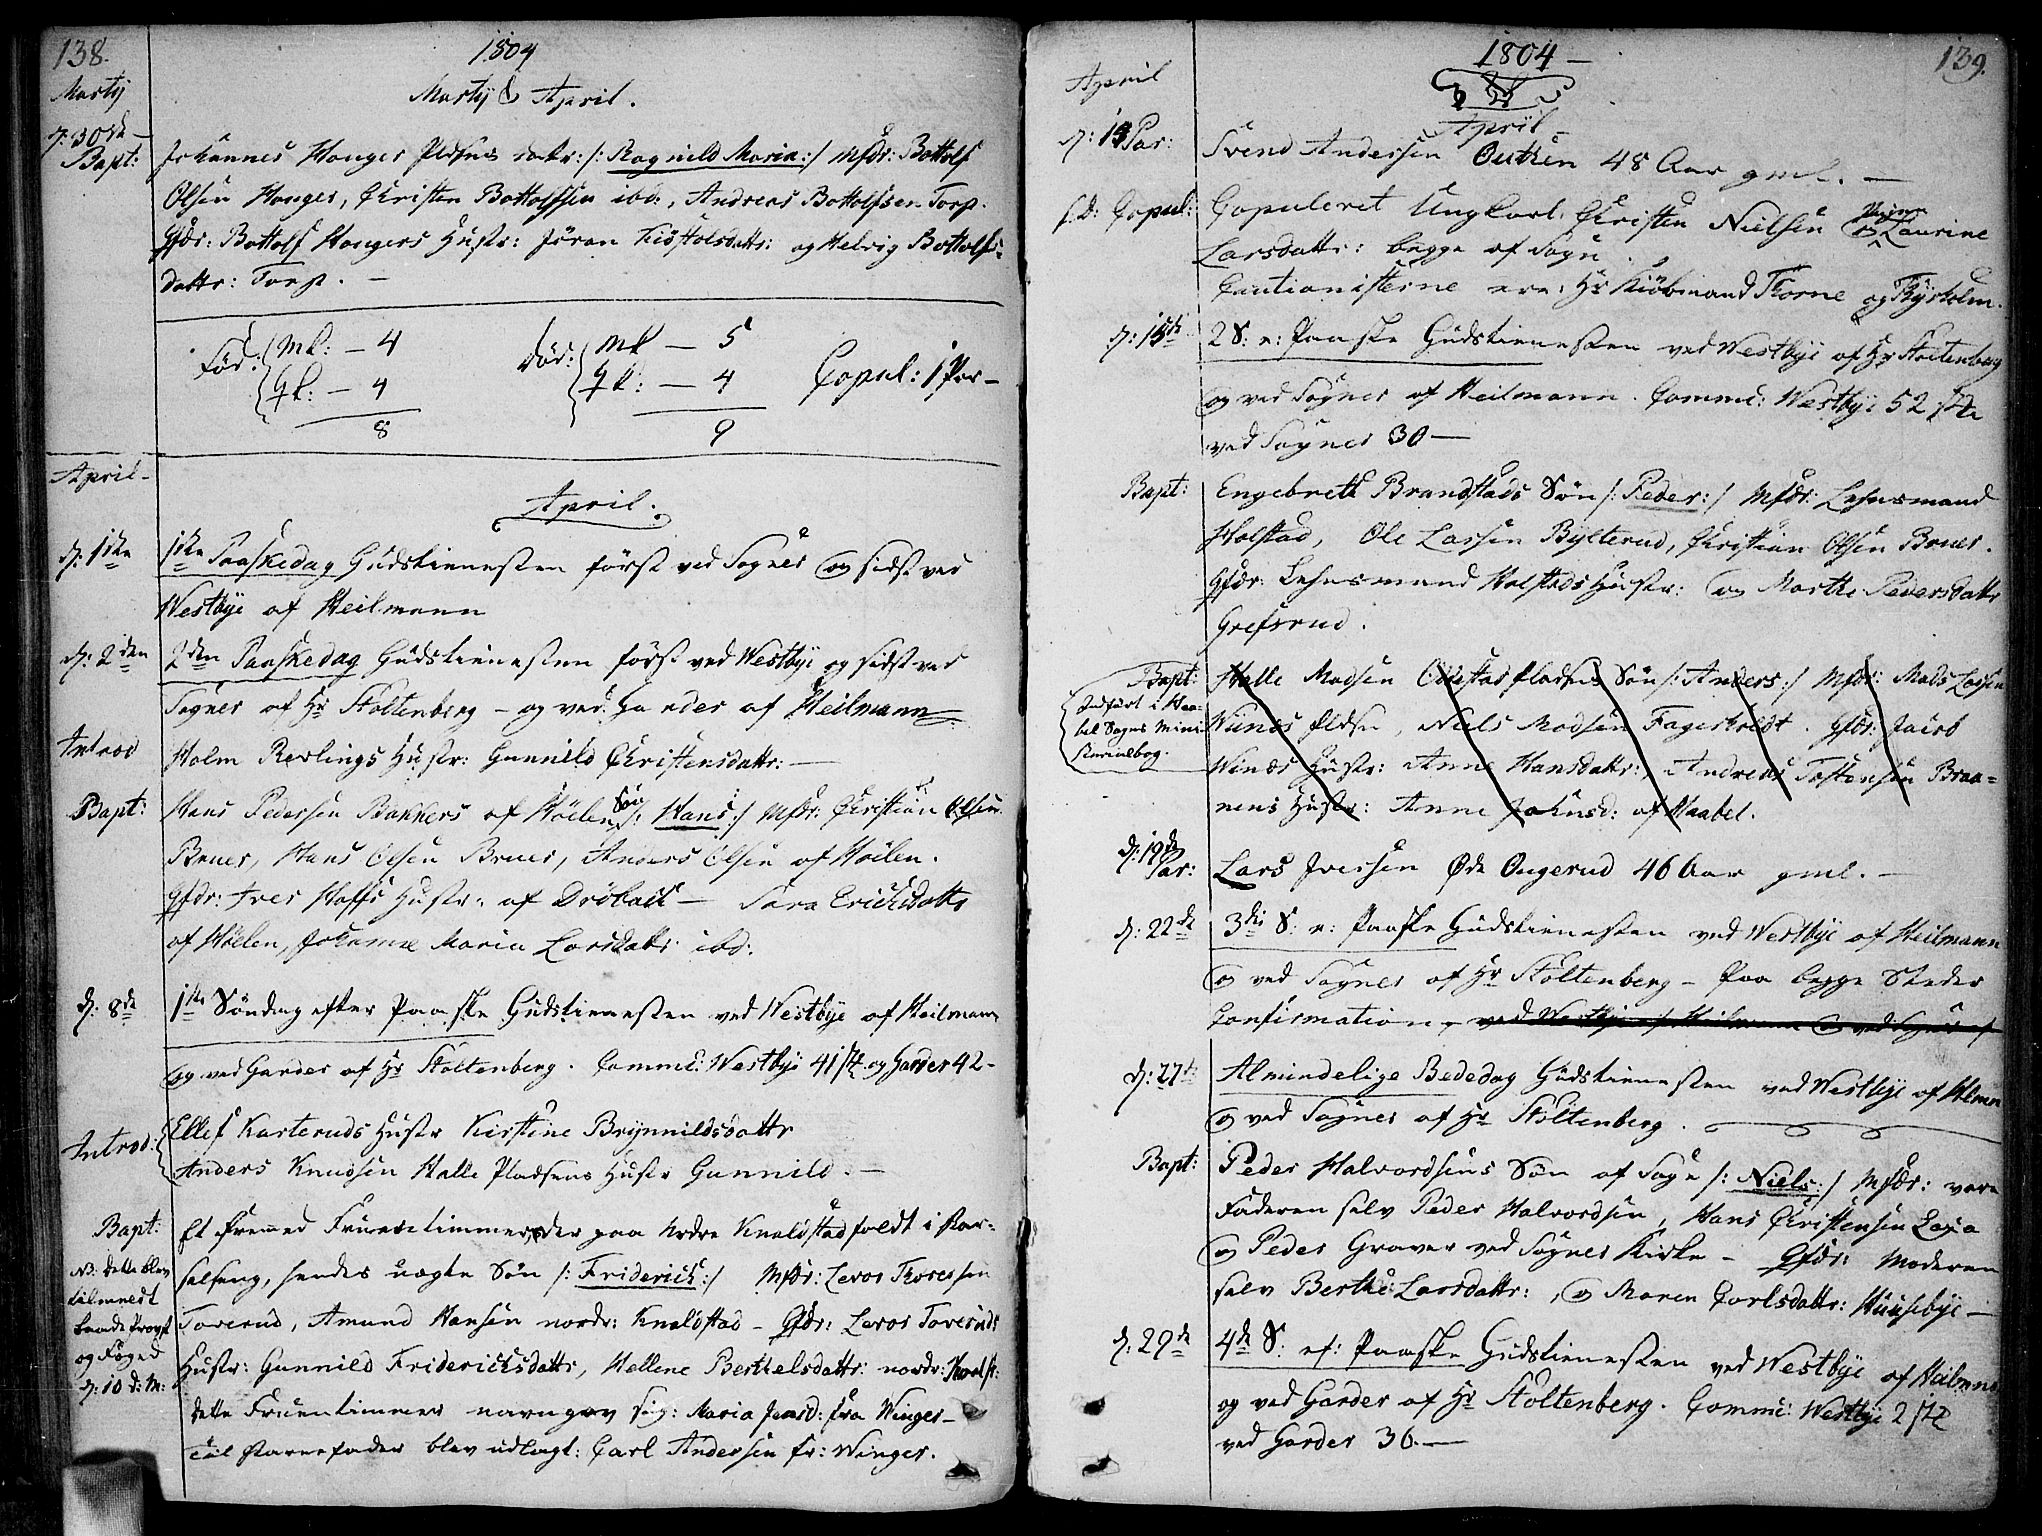 138.
1804
Martij & April.
Martij
d: 30de
Bapt: Johannes Hanger Pldsens datr: /: Ragnild Maria :/ Mfdr: Bottolf
Olsen Hanger, Christen Bottolfssen ibd:, Andreas Bottolfsen Torp.
Qfdr: Bottolf Hangers Hustr: Jöran Kiöstolsdattr: og Helvig Bottolfs-
dattr: Torp. —
Fød: Mk: — 4
Qk: — 4
8
død: Mk — 5
Qk: — 4
9
Copul: 1 Par —
April —
April.
d: 1ste 1ste Paaskedag Gudstienesten først ved Sogner og sidst ved
Westbye af Heilmann
d: 2den 2den Paaskedag Gudstienesten først ved Westbye og sidst ved
Sogner af Hr Stoltenberg — og ved Garder af Heilmann
Introd Holm Revlings Hustr: Gunnild Christensdattr: —
Bapt: Hans Pedersen Bakkers af Höelen Søn /: Hans :/ Mfdr: Christian Olsen
Bruer, Hans Olsen Bruer, Anders Olsen af Höelen.
Qfdr: Iver Hoffs Hustr: af Dröbach — Sara Erichsdattr
af Höelen, Johanne Maria Larsdattr ibd:
d: 8de 1ste Söndag efter Paaske Gudstienesten ved Westbye af Heilmann
og ved Garder af Hr Stoltenberg. Comme: Westbye 41 stk og Garder 42 —
Introd: Ellef Karteruds Hustr Kirstine Brynnildsdattr
Anders Knudsen Halle Pladsens Hustr Gunnild. —
Bapt: Et fremed Fruentimmer, der paa Nordre Knalstad faldt i Bar-
selseng, hendes uægte Søn /: Friderich :/ Mfdr: Levor Thoresen
Taverud, Amund Hansen nordr: Knalstad — Qfdr: Levor Taveruds
Hustr: Gunnild Friderichsdattr, Hellene Berthelsdattr: nordr: Knalst:
dette Fruentimmer navngav sig: Maria Jensd: fra Winger —
til Barnefader blev udlagt: Carl Andersen fr: Winger.
NB. dette blev
tilmeldt
baade Provst
og Foged
d: 10 d: M:
139.
1804 —
April
April
d: 13 Par: Svend Andersen Outhen 48 Aar gml. —
s.D: Copul: Copuleret Ungkarl: Christen Nielsen og Pigen Laurine
Larsdattr: begge af Sogn.
Cautionisterne ere: Hr Kiöbmand Thorne og Thyrholm.
d: 15de 2 S: e: Paaske Gudstienesten ved Westbye af Hr Stoltenberg
og ved Sogner af Heilmann. Comme: Westbye 52 stk
ved Sogner 30 —
Bapt: Engebreth Brandstads Søn /: Peder :/ Mfdr: Lehnsmand
Holstad, Ole Larsen Bylterud, Christian Olsen Bruer.
Qfdr: Lehnsmand Holstads Hustr: og Marthe Pedersdattr
Grefsrud.
Bapt: Halle Madsen Pladsens Søn /: Anders :/ Mfdr: Mads Larsen
Wiinæs Pldsn, Niels Madsen Fagertvedt. Qfdr: Jacob
Winæs Hustr: Anne Hansdattr:, Andreas Tostensen Braa-
nens Hustr: Anne Johnsd: af Haabel.
Indført i Haa-
bel Sogns Mini-
sterialbog.
d: 19de
Par: Lars Iversen Øde Ongerud 46 Aar gml. —
d: 22de 3die S: e: Paaske Gudstienesten ved Westbye af Heilmann
og ved Sogner af Hr Stoltenberg — Paa begge Steder
Confirmation, ved Westbye af Heilmann og ved Sogner af
d: 27de Almindelige Bededag Gudstienesten ved Westbye af Hlmn
og ved Sogner af Hr Stoltenberg.
Bapt: Peder Halvordsens Søn af Soge /: Niels :/ Mfdr: vare
Faderen selv Peder Halvordsen, Hans Christensen
og Peder Graver ved Sogner Kirke — Qfdr: Moderen
selv Berthe Larsdattr:, og Maren Carlsdattr: Huusebye —
d: 29de 4de S: ef: Paaske Gudstienesten ved Westbye af Heilmn
og ved Garder af Hr Stoltenberg. Comme: Westbye 2 stk
ved Garder 36. —